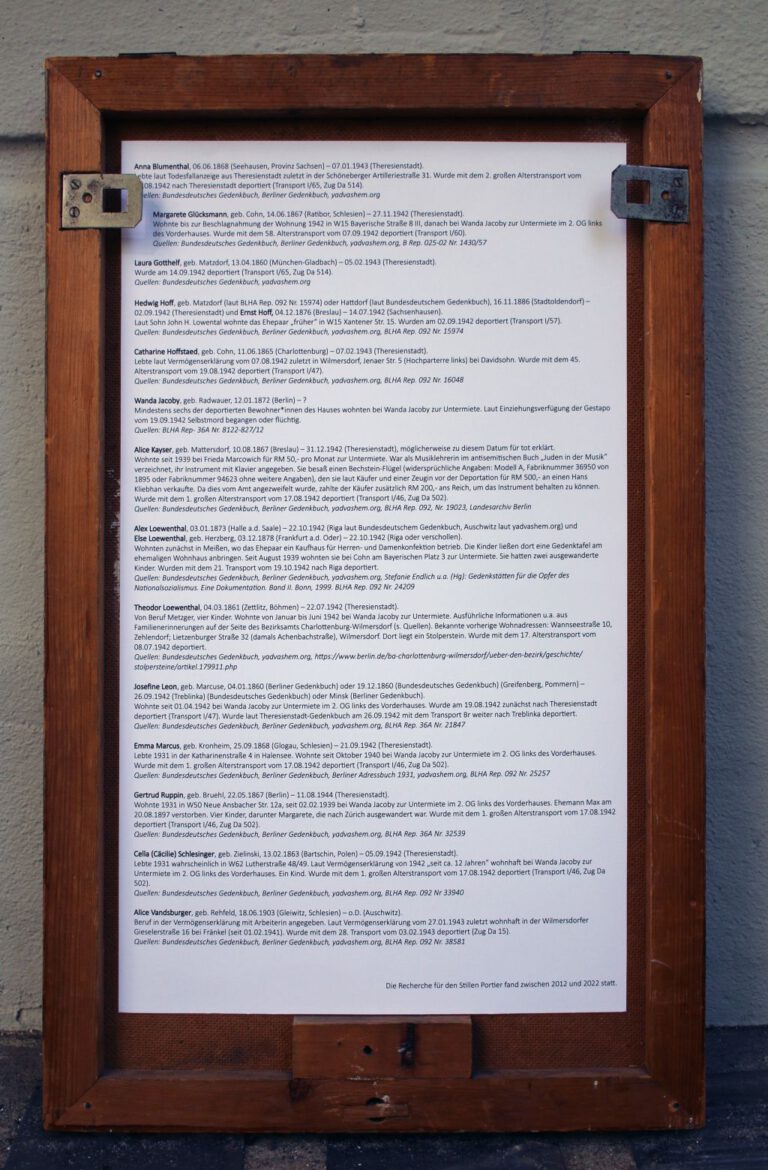 Anna Blumenthal, 06.06.1868 (Seehausen, Provinz Sachsen) – 07.01.1943 (Theresienstadt).
ebte laut Todesfallanzeige aus Theresienstadt zuletzt in der Schöneberger Artilleriestraße 31. Wurde mit dem 2. großen Alterstransport vom
.08.1942 nach Theresienstadt deportiert (Transport I/65, Zug Da 514).
ellen: Bundesdeutsches Gedenkbuch, Berliner Gedenkbuch, yadvashem.org
Margarete Glücksmann, geb. Cohn, 14.06.1867 (Ratibor, Schlesien) – 27.11.1942 (Theresienstadt).
Wohnte bis zur Beschlagnahmung der Wohnung 1942 in W15 Bayerische Straße 8 III, danach bei Wanda Jacoby zur Untermiete im 2. OG links
des Vorderhauses. Wurde mit dem 58. Alterstransport vom 07.09.1942 deportiert (Transport I/60).
Quellen: Bundesdeutsches Gedenkbuch, Berliner Gedenkbuch, yadvashem.org, B Rep. 025-02 Nr. 1430/57
Laura Gotthelf, geb. Matzdorf, 13.04.1860 (München-Gladbach) – 05.02.1943 (Theresienstadt).
Wurde am 14.09.1942 deportiert (Transport I/65, Zug Da 514).
Quellen: Bundesdeutsches Gedenkbuch, yadvashem.org
Hedwig Hoff, geb. Matzdorf (laut BLHA Rep. 092 Nr. 15974) oder Hattdorf (laut Bundesdeutschem Gedenkbuch), 16.11.1886 (Stadtoldendorf) –
02.09.1942 (Theresienstadt) und Ernst Hoff, 04.12.1876 (Breslau) – 14.07.1942 (Sachsenhausen).
Laut Sohn John H. Lowental wohnte das Ehepaar „früher“ in W15 Xantener Str. 15. Wurden am 02.09.1942 deportiert (Transport I/57).
Quellen: Bundesdeutsches Gedenkbuch, Berliner Gedenkbuch, yadvashem.org, BLHA Rep. 092 Nr. 15974
Catharine Hoffstaed, geb. Cohn, 11.06.1865 (Charlottenburg) – 07.02.1943 (Theresienstadt).
Lebte laut Vermögenserklärung vom 07.08.1942 zuletzt in Wilmersdorf, Jenaer Str. 5 (Hochparterre links) bei Davidsohn. Wurde mit dem 45.
Alterstransport vom 19.08.1942 deportiert (Transport I/47).
Quellen: Bundesdeutsches Gedenkbuch, Berliner Gedenkbuch, yadvashem.org, BLHA Rep. 092 Nr. 16048
Wanda Jacoby, geb. Radwauer, 12.01.1872 (Berlin) – ?
Mindestens sechs der deportierten Bewohner*innen des Hauses wohnten bei Wanda Jacoby zur Untermiete. Laut Einziehungsverfügung der Gestapo
vom 19.09.1942 Selbstmord begangen oder flüchtig.
Quellen: BLHA Rep- 36A Nr. 8122-827/12
Alice Kayser, geb. Mattersdorf, 10.08.1867 (Breslau) – 31.12.1942 (Theresienstadt), möglicherweise zu diesem Datum für tot erklärt.
Wohnte seit 1939 bei Frieda Marcowich für RM 50,- pro Monat zur Untermiete. War als Musiklehrerin im antisemitischen Buch „Juden in der Musik“
verzeichnet, ihr Instrument mit Klavier angegeben. Sie besaß einen Bechstein-Flügel (widersprüchliche Angaben: Modell A, Fabriknummer 36950 von
1895 oder Fabriknummer 94623 ohne weitere Angaben), den sie laut Käufer und einer Zeugin vor der Deportation für RM 500,- an einen Hans
Kliebhan verkaufte. Da dies vom Amt angezweifelt wurde, zahlte der Käufer zusätzlich RM 200,- ans Reich, um das Instrument behalten zu können.
Wurde mit dem 1. großen Alterstransport vom 17.08.1942 deportiert (Transport I/46, Zug Da 502).
Quellen: Bundesdeutsches Gedenkbuch, Berliner Gedenkbuch, yadvashem.org, BLHA Rep. 092, Nr. 19023, Landesarchiv Berlin
Alex Loewenthal, 03.01.1873 (Halle a.d. Saale) – 22.10.1942 (Riga laut Bundesdeutschem Gedenkbuch, Auschwitz laut yadvashem.org) und
Else Loewenthal, geb. Herzberg, 03.12.1878 (Frankfurt a.d. Oder) – 22.10.1942 (Riga oder verschollen).
Wohnten zunächst in Meißen, wo das Ehepaar ein Kaufhaus für Herren- und Damenkonfektion betrieb. Die Kinder ließen dort eine Gedenktafel am
ehemaligen Wohnhaus anbringen. Seit August 1939 wohnten sie bei Cohn am Bayerischen Platz 3 zur Untermiete. Sie hatten zwei ausgewanderte
Kinder. Wurden mit dem 21. Transport vom 19.10.1942 nach Riga deportiert.
Quellen: Bundesdeutsches Gedenkbuch, Berliner Gedenkbuch, yadvashem.org, Stefanie Endlich u.a. (Hg): Gedenkstätten für die Opfer des
Nationalsozialismus. Eine Dokumentation. Band II. Bonn, 1999. BLHA Rep. 092 Nr. 24209
Theodor Loewenthal, 04.03.1861 (Zettlitz, Böhmen) – 22.07.1942 (Theresienstadt).
Von Beruf Metzger, vier Kinder. Wohnte von Januar bis Juni 1942 bei Wanda Jacoby zur Untermiete. Ausführliche Informationen u.a. aus
Familienerinnerungen auf der Seite des Bezirksamts Charlottenburg-Wilmersdorf (s. Quellen). Bekannte vorherige Wohnadressen: Wannseestraße 10,
Zehlendorf; Lietzenburger Straße 32 (damals Achenbachstraße), Wilmersdorf. Dort liegt ein Stolperstein. Wurde mit dem 17. Alterstransport vom
08.07.1942 deportiert.
Quellen: Bundesdeutsches Gedenkbuch, yadvashem.org, https://www.berlin.de/ba-charlottenburg-wilmersdorf/ueber-den-bezirk/geschichte/
stolpersteine/artikel.179911.php
Josefine Leon, geb. Marcuse, 04.01.1860 (Berliner Gedenkbuch) oder 19.12.1860 (Bundesdeutsches Gedenkbuch) (Greifenberg, Pommern) –
26.09.1942 (Treblinka) (Bundesdeutsches Gedenkbuch) oder Minsk (Berliner Gedenkbuch).
Wohnte seit 01.04.1942 bei Wanda Jacoby zur Untermiete im 2. OG links des Vorderhauses. Wurde am 19.08.1942 zunächst nach Theresienstadt
deportiert (Transport I/47). Wurde laut Theresienstadt-Gedenkbuch am 26.09.1942 mit dem Transport Br weiter nach Treblinka deportiert.
Quellen: Bundesdeutsches Gedenkbuch, Berliner Gedenkbuch, yadvashem.org, BLHA Rep. 36A Nr. 21847
Emma Marcus, geb. Kronheim, 25.09.1868 (Glogau, Schlesien) – 21.09.1942 (Theresienstadt).
Lebte 1931 in der Katharinenstraße 4 in Halensee. Wohnte seit Oktober 1940 bei Wanda Jacoby zur Untermiete im 2. OG links des Vorderhauses.
Wurde mit dem 1. großen Alterstransport vom 17.08.1942 deportiert (Transport I/46, Zug Da 502).
Quellen: Bundesdeutsches Gedenkbuch, Berliner Gedenkbuch, Berliner Adressbuch 1931, yadvashem.org, BLHA Rep. 092 Nr. 25257
Gertrud Ruppin, geb. Bruehl, 22.05.1867 (Berlin) – 11.08.1944 (Theresienstadt).
Wohnte 1931 in W50 Neue Ansbacher Str. 12a, seit 02.02.1939 bei Wanda Jacoby zur Untermiete im 2. OG links des Vorderhauses. Ehemann Max am
20.08.1897 verstorben. Vier Kinder, darunter Margarete, die nach Zürich ausgewandert war. Wurde mit dem 1. großen Alterstransport vom 17.08.1942
deportiert (Transport I/46, Zug Da 502).
Quellen: Bundesdeutsches Gedenkbuch, Berliner Gedenkbuch, yadvashem.org, BLHA Rep. 36A Nr. 32539
Cella (Cäcilie) Schlesinger, geb. Zielinski, 13.02.1863 (Bartschin, Polen) – 05.09.1942 (Theresienstadt).
Lebte 1931 wahrscheinlich in W62 Lutherstraße 48/49. Laut Vermögenserklärung von 1942 „seit ca. 12 Jahren“ wohnhaft bei Wanda Jacoby zur
Untermiete im 2. OG links des Vorderhauses. Ein Kind. Wurde mit dem 1. großen Alterstransport vom 17.08.1942 deportiert (Transport I/46, Zug Da
502).
Quellen: Bundesdeutsches Gedenkbuch, Berliner Gedenkbuch, yadvashem.org, BLHA Rep. 092 Nr 33940
Alice Vandsburger, geb. Rehfeld, 18.06.1903 (Gleiwitz, Schlesien) – o.D. (Auschwitz).
Beruf in der Vermögenserklärung mit Arbeiterin angegeben. Laut Vermögenserklärung vom 27.01.1943 zuletzt wohnhaft in der Wilmersdorfer
Gieselerstraße 16 bei Fränkel (seit 01.02.1941). Wurde mit dem 28. Transport vom 03.02.1943 deportiert (Zug Da 15).
Quellen: Bundesdeutsches Gedenkbuch, Berliner Gedenkbuch, yadvashem.org, BLHA Rep. 092 Nr. 38581
Die Recherche für den Stillen Portier fand zwischen 2012 und 2022 statt.